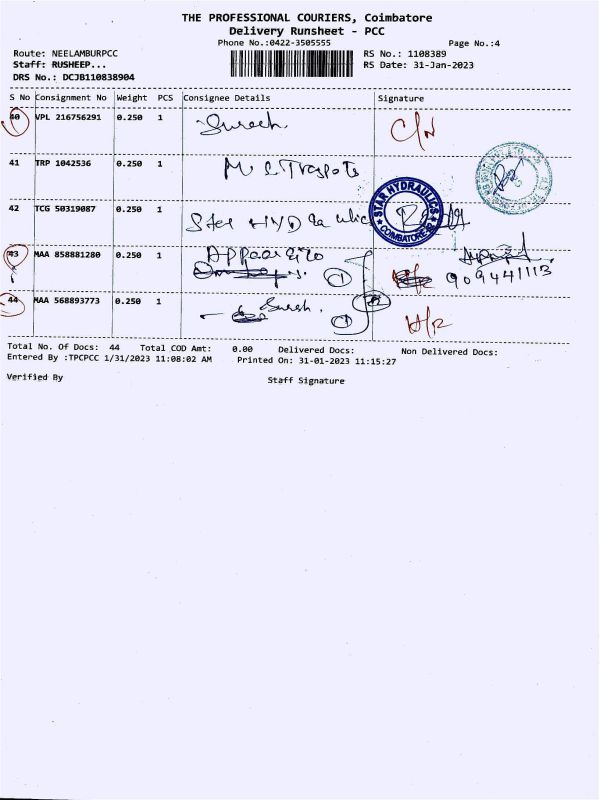 THE PROFESSIONAL COURIERS, Coimbatore
Delivery Runsheet - PCC
Phone No.:0422-3505555 Page No.:4
Route: NEELAMBURPCC RS No.: 1108389
Staff: RUSHEEP... RS Date: 31-Jan-2023
DRS No.: DCJB110838904
S No Consignment No Weight PCS Consignee Details Signature
40 VPL 216756291 0.250 1 Suresh.
41 TRP 1042536 0.250 1
42 TCG 50319087 0.250 1 Star HYD
STAR HYDRAULICS
COIMBATORE
43 MAA 858881280 0.250 1 1
909441113
44 MAA 568893773 0.250 1 Suresh. 1
Total No. Of Docs: 44 Total COD Amt: 0.00 Delivered Docs: Non Delivered Docs:
Entered By :TPCPCC 1/31/2023 11:08:02 AM Printed On: 31-01-2023 11:15:27
Verified By Staff Signature